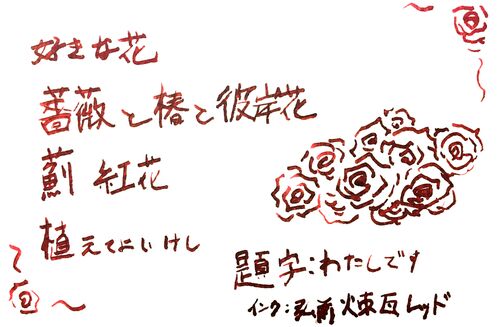 好きな花
薔薇と椿と彼岸花
薊 紅花
植えてよいけし
題字:わたしです
インク:弘前煉瓦レッド